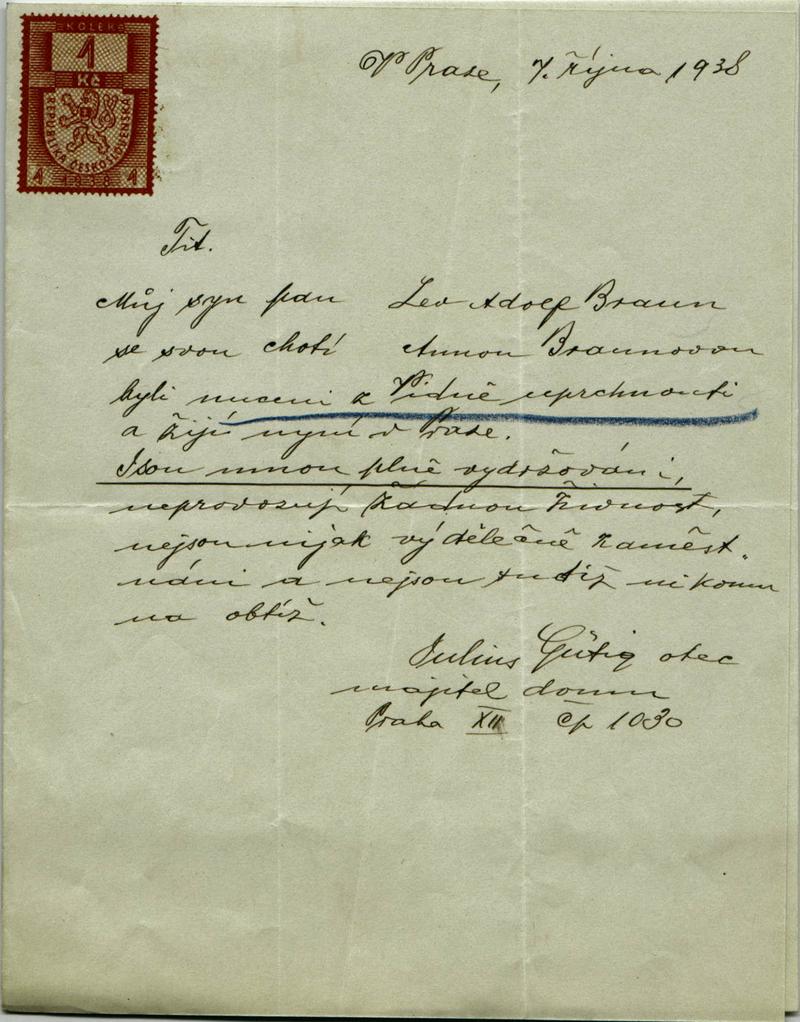 KOLEK
1
Kč
REPUBLIKA ČESKOSLOVENSKÁ
1 1938 1
V Praze, 7. října 1938
Tit.
Můj syn pan Leo Adolf Braun
se svou chotí Annou Braunovou
byli nuceni z Vídně uprchnouti
a žijí nyní v Praze.
Jsou mnou plně vydržováni,
neprovozují žádnou živnost,
nejsou nijak výdělečně zaměst-
náni a nejsou tudíž nikomu
na obtíž.
Julius Gütig otec
majitel domu
Praha XII čp 1030